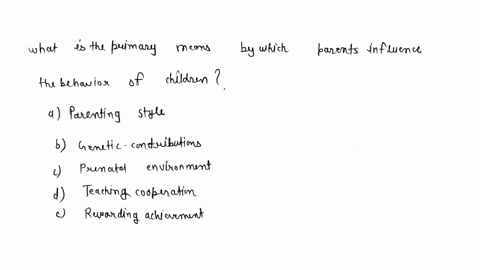 what is the primary means by which parents influence
the behavior of children?
a) Parenting style
b) Genetic contributions
c) Prenatal environment
d) Teaching cooperation
e) Rewarding achievement